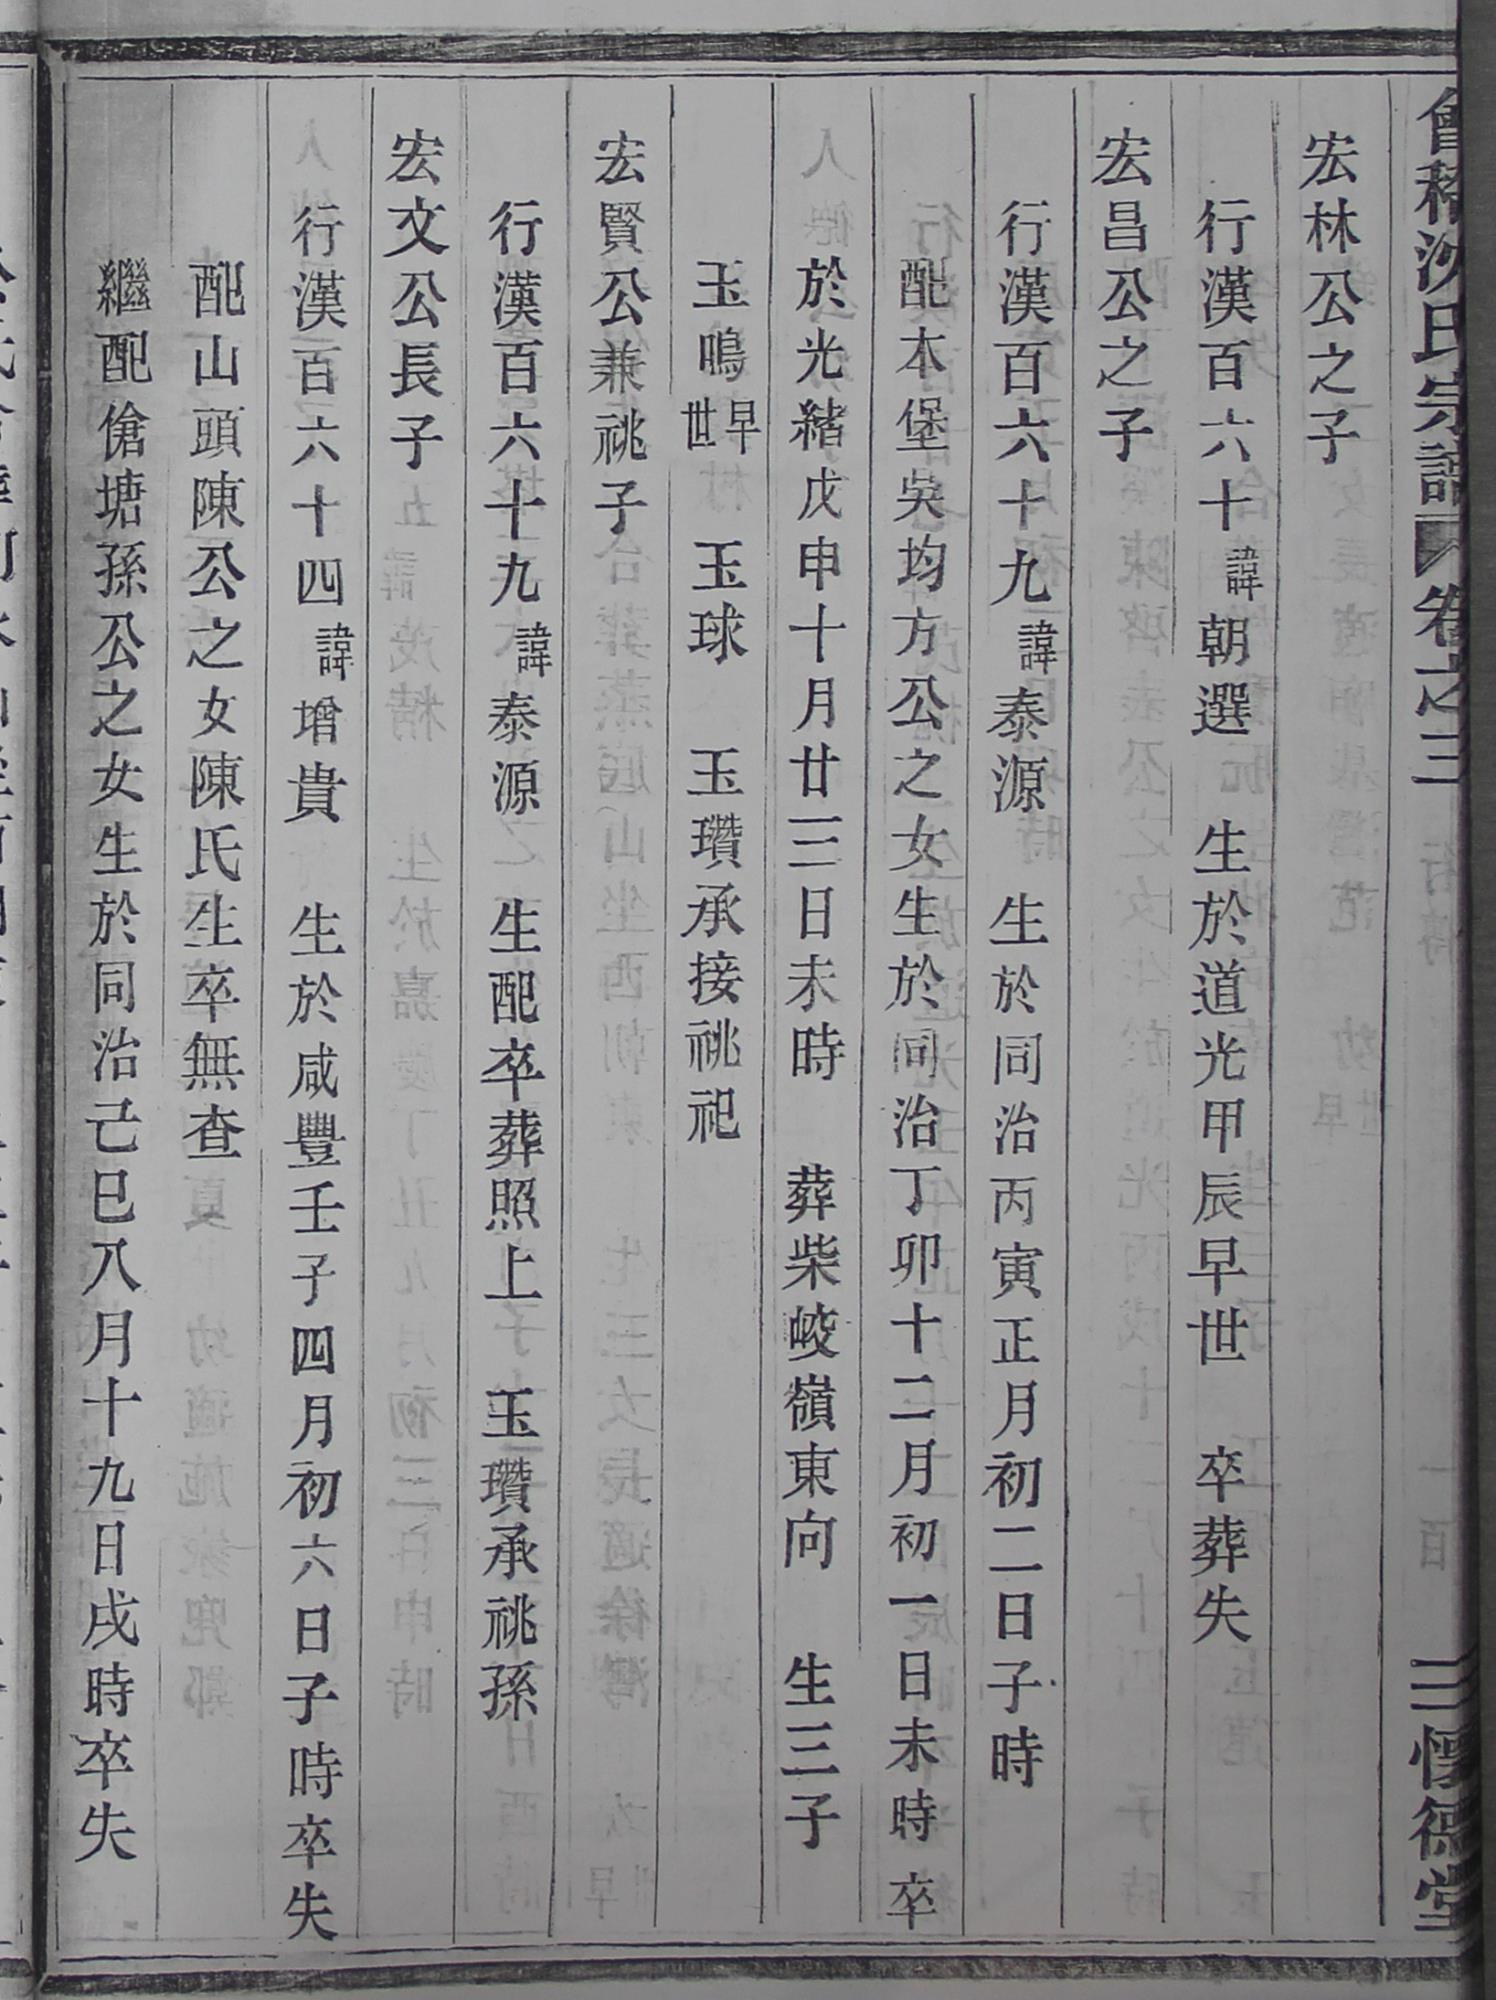 會稽沈氏宗譜 卷之三 懷德堂
宏林公之子
行漢百六十諱朝選 生於道光甲辰早世 卒葬失
宏昌公之子
行漢百六十九諱泰源 生於同治丙寅正月初二日子時
配本堡吳均方公之女生於同治丁卯十二月初一日未時卒
於光緒戊申十月廿三日未時 葬柴峧嶺東向 生三子
玉鳴早世 玉球 玉瓚承接祧祀
宏賢公兼祧子
行漢百六十九諱泰源 生配卒葬照上 玉瓚承祧孫
宏文公長子
行漢百六十四諱增貴 生於咸豐壬子四月初六日子時卒失
配山頭陳公之女陳氏生卒無查
繼配傖塘孫公之女生於同治己巳八月十九日戌時卒失